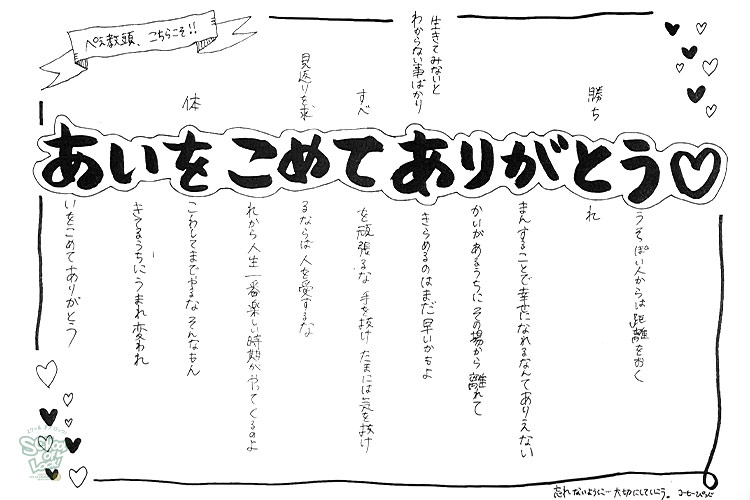 ぺえ教頭、こちらこそ!!
あいをこめてありがとう♡
うそぽい人からは距離をおく
勝ち
れ
まんすることで幸せになれるなんてありえない
かいがあるうちにその場から離れて
生きてみないと
わからない事ばかり
きらめるのはまだ早いかもよ
すべ
を頑張るな 手を抜け たまには気を抜け
見返りを求
るならば人を愛するな
れから人生一番楽しい時期がやってくるのよ
体
こわしてまでやるな そんなもん
きてるうちにうまれ変われ
いをこめてありがとう
忘れないように…大切にしていこう。